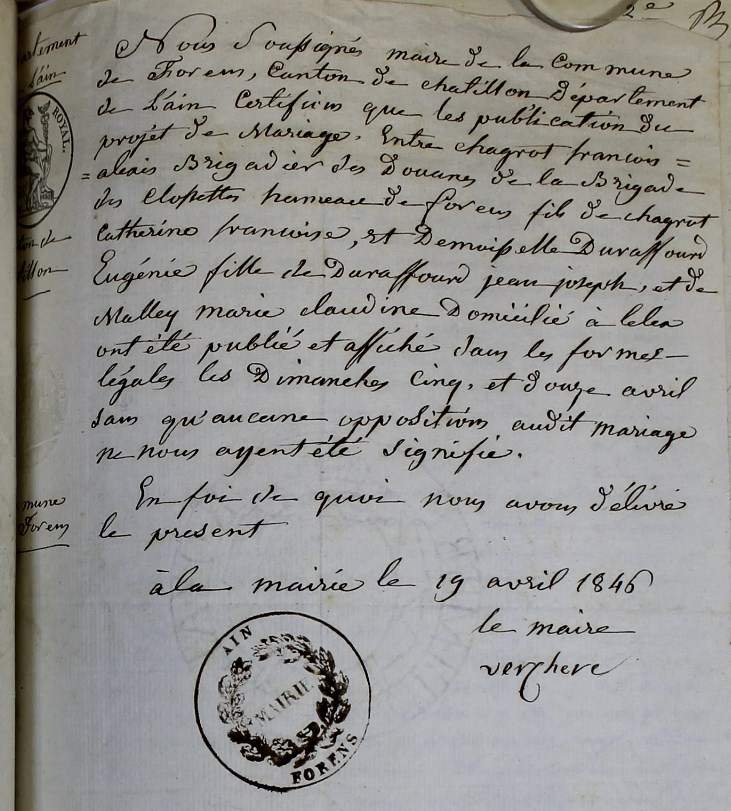 2e
artement
l'ain
ROYAL.
Nous Soussignés maire de la Commune
de Forens, Canton de chatillon Département
de L'ain Certifions que les publication du
projet de Mariage. Entre chagrot francois =
= alexis Brigadier des Douanes de la Brigade
des Closettes hameau de forens fils de chagrot
Catherine francoise, et Demoisselle Duraffourd
Eugénie fille de Duraffourd jean joseph, et de
Malley marie claudine Domicilié à lelex
ont été publié et affiché dans les formes
légales les Dimanches Cinq, et douze avril
sans qu'aucune oppositions audit mariage
ne nous ayent été Signifié.
En foi de quoi nous avons délivré
le present
à la mairie le 19 avril 1846
le maire
verchere
ton de
tillon
mune
Forens
AIN
MAIRIE
FORENS